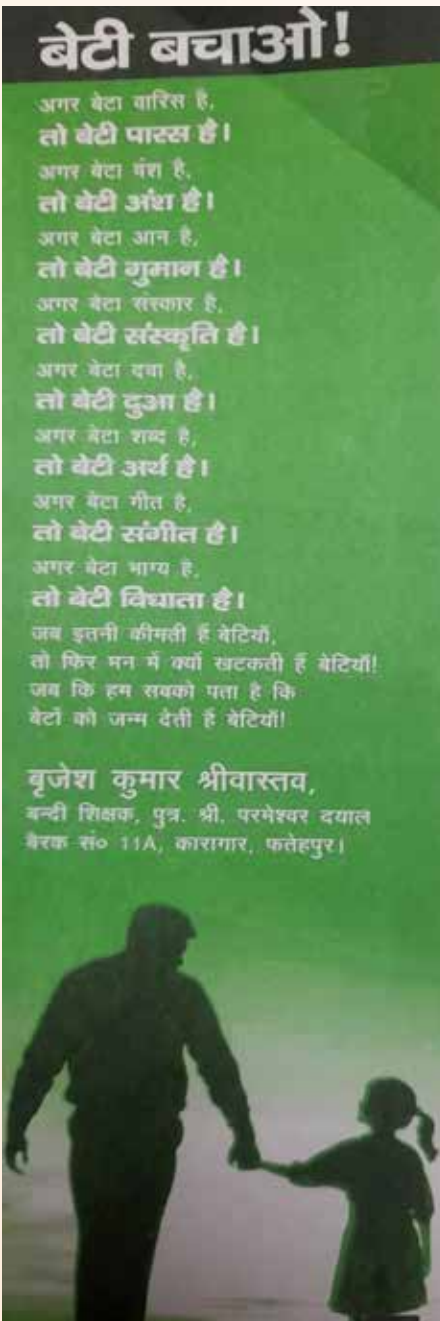 बेटी बचाओ!
अगर बेटा वारिस है,
तो बेटी पारस है।
अगर बेटा वंश है,
तो बेटी अंश है।
अगर बेटा आन है,
तो बेटी गुमान है।
अगर बेटा संस्कार है,
तो बेटी संस्कृति है।
अगर बेटा दवा है,
तो बेटी दुआ है।
अगर बेटा शब्द है,
तो बेटी अर्थ है।
अगर बेटा गीत है,
तो बेटी संगीत है।
अगर बेटा भाग्य है,
तो बेटी विधाता है।
जब इतनी कीमती हैं बेटियाँ,
तो फिर मन में क्यों खटकती हैं बेटियाँ!
जब कि हम सबको पता है कि
बेटों को जन्म देती हैं बेटियाँ!
बृजेश कुमार श्रीवास्तव,
बन्दी शिक्षक, पुत्र. श्री. परमेश्वर दयाल
बैरक सं० 11A, कारागार, फतेहपुर।